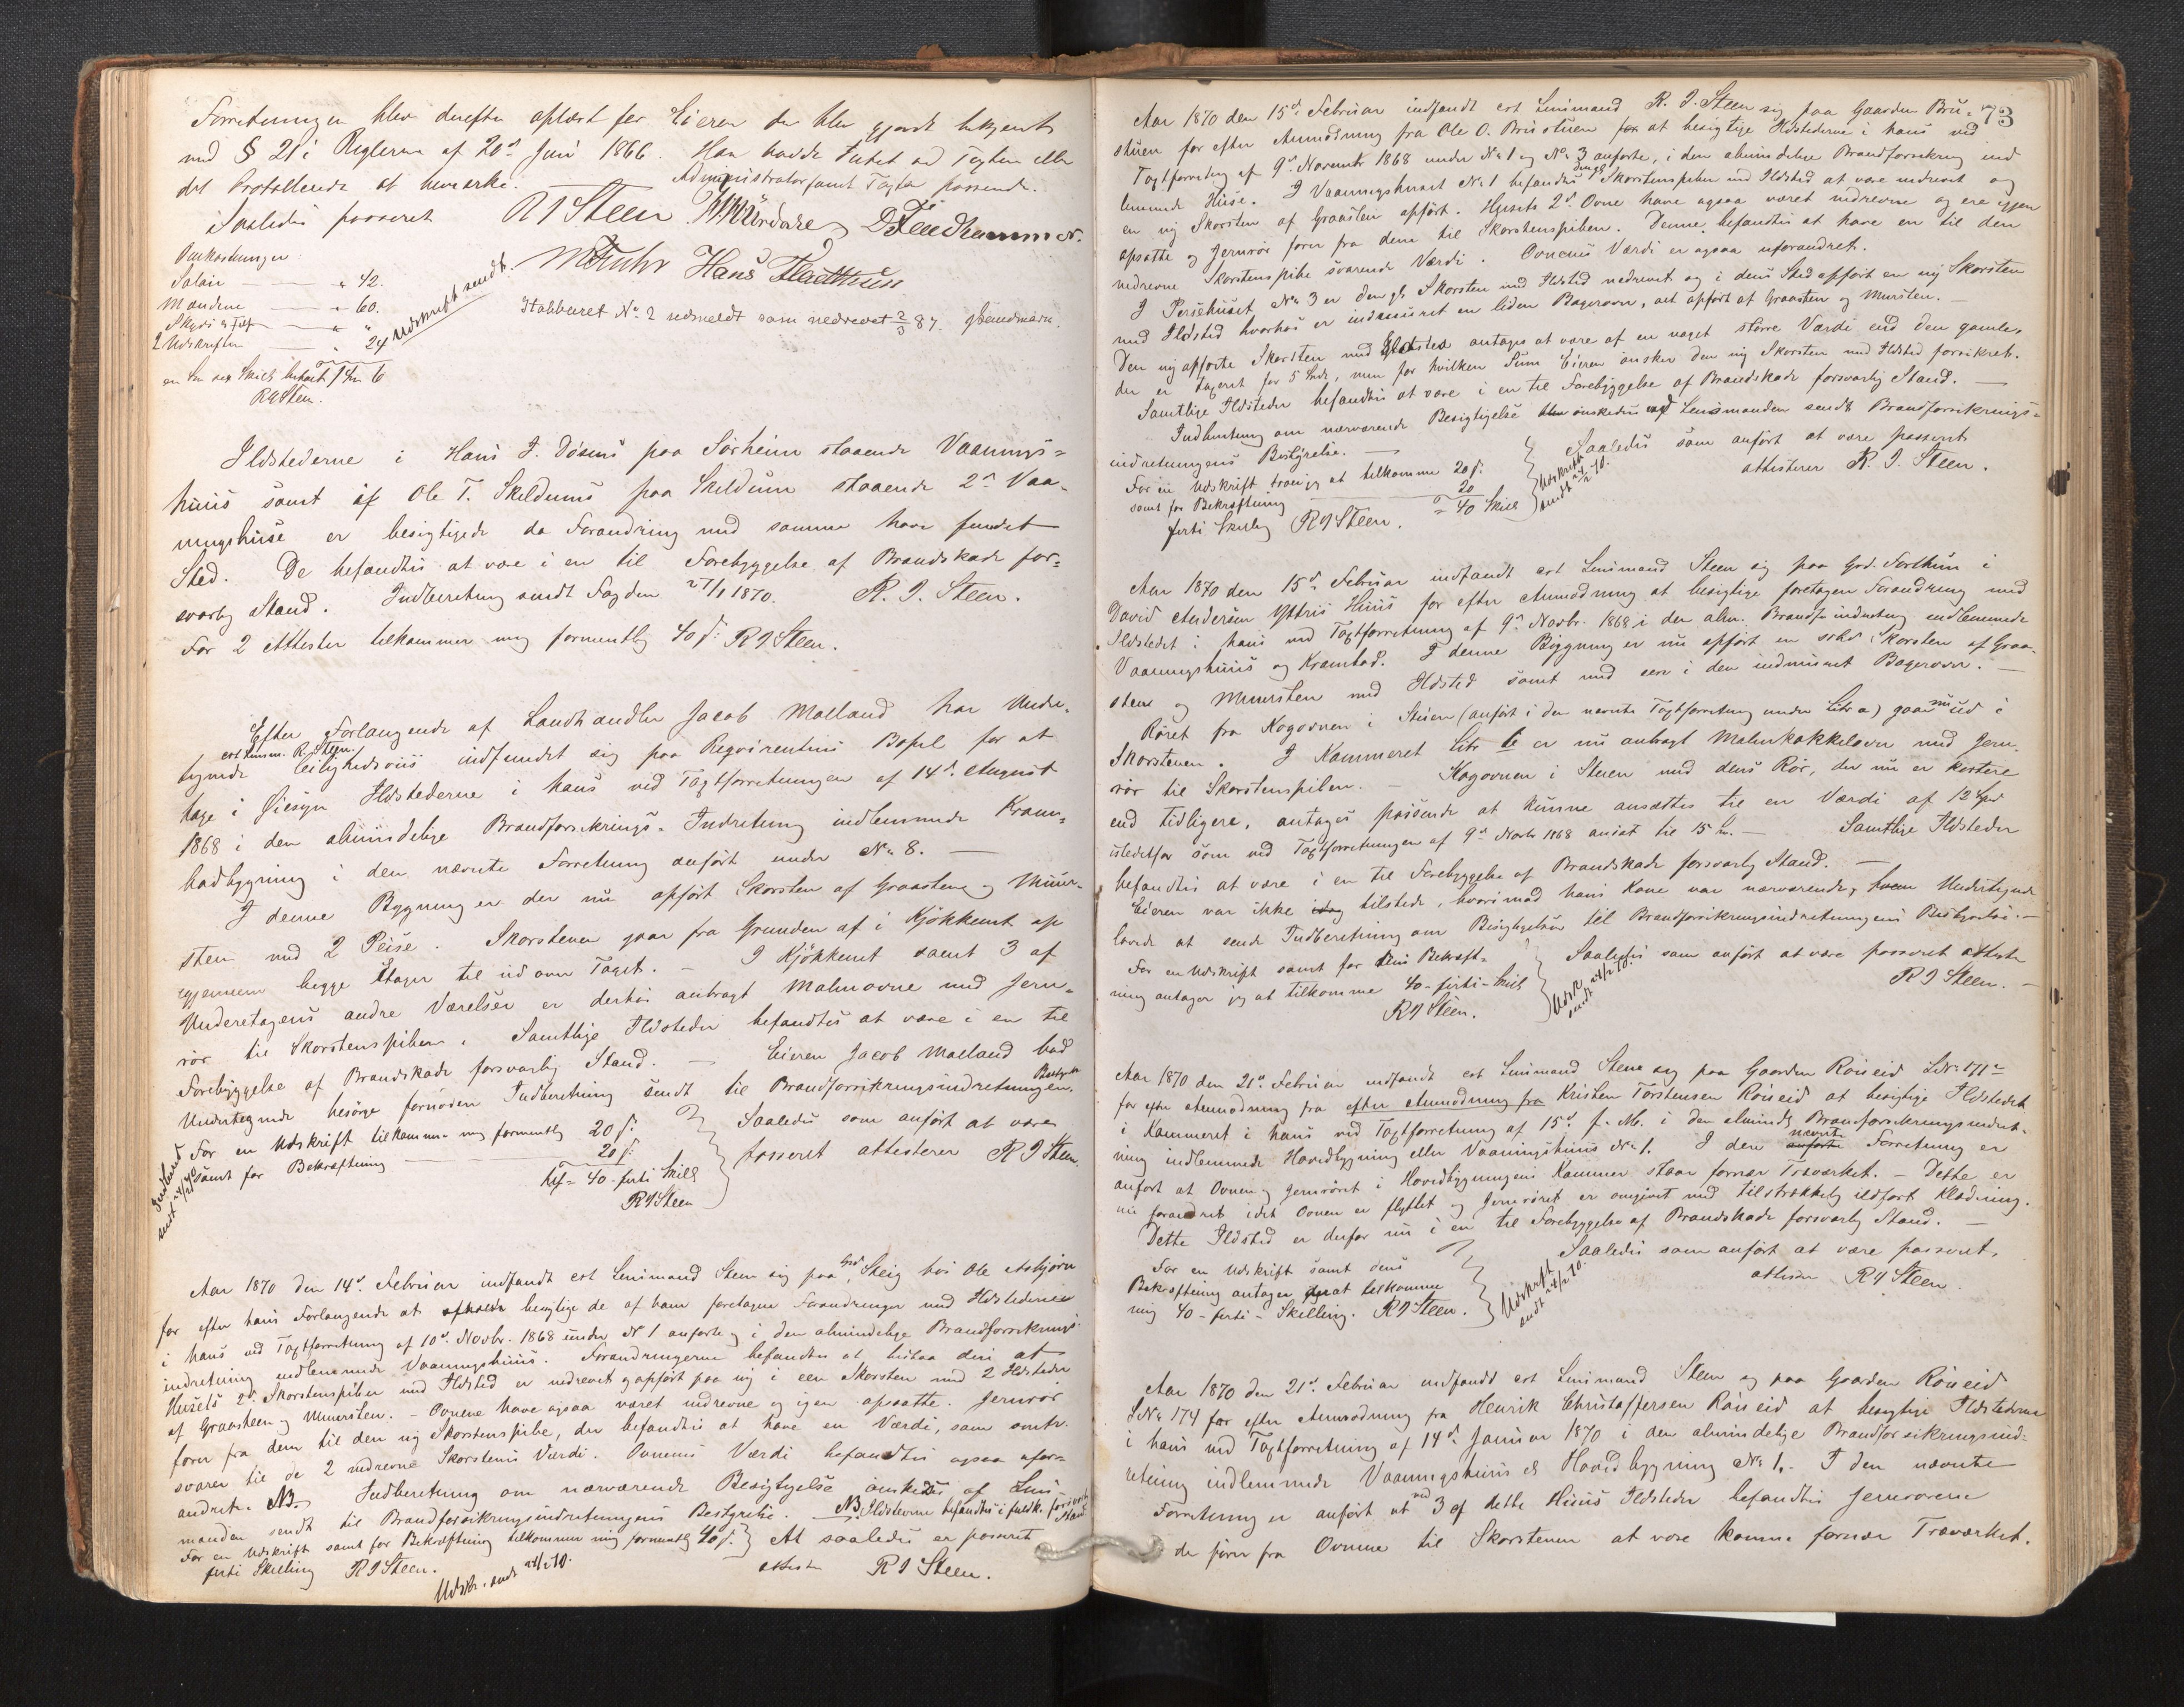 Forretningen blev derefter oplæst for Eieren der blev gjort bekjendt
med § 21 i Reglerne af 20de Juni 1866. Han havde Intet ved Taxten eller
det Protokollerede at bemærke. Administrator fandt Taxten passende.
Saaledes passeret R I Steen
W Fuhr Hans
Omkostninger:
Salair — " 42.
Mændene — " 60.
Skyds — " "
2 Udskrifter — " 24
Udskrift sendt.
en Sp sex Skill betalt 1 Sp 6
R I Steen.
Stabburet No 2 udmeldt som nedrevet 2/3 87.
Ildstederne i Hans J. Døsens paa Sørheim staaende Vaanings-
huus samt af Ole T. Skeldums paa Skeldum staaende 2de Vaa-
ningshuse er besigtigede da Forandring med samme have fundet
Sted. De befandtes at være i en til Forebyggelse af Brandskade for-
svarlig Stand. Indberetning sendt Fogden 27/1 1870. R. I. Steen.
For 2 Attester tilkommer mig formentlig 40 s: R I Steen.
Efter Forlangende af Landhandler Jacob Molland har Under-
tegnede const Lensm. R. Steen leilighedsviis indfundet sig paa Reqvirentens Bopæl for at
tage i Øiesyn Ildstederne i hans ved Taxtforretningen af 14de August
1868 i den almindelige Brandforsikrings-Indretning indlemmede Kram-
badbygning i den nævnte Forretning anført under No 8. —
I denne Bygning er der nu opført Skorsten af Graasten og Muur-
sten med 2 Peise. Skorstenen gaar fra Grunden af i Kjøkkenet op
igjennem begge Etager til ud over Taget. — I Kjøkkenet samt 3 af
Underetagens andre Værelser er derhos anbragt Malmovne med Jern-
rør til Skorstenspiben. Samtlige Ildsteder befandtes at være i en til
Forebyggelse af Brandskade forsvarlig Stand. — Eieren Jacob Molland bad
Undertegnede besørge fornøden Indberetning sendt til Brandforsikringsindretningens Bestyrelse.
For en Udskrift tilkommer mig formentlig 20 s:
samt for Bekræftning 20 s:
40 - firti Skill
R I Steen
Saaledes som anført at være
passeret attesterer R I Steen
Aar 1870 den 14de Februar indfandt cst Lensmand Steen sig paa Grd. Steig hos Ole Asbjørn
for efter hans Forlangende at afholde besigtige de af ham foretagne Forandringer med Ildstederne
i hans ved Taxtforretning af 10de Novbr. 1868 under No 1 anførte og i den almindelige Brandforsikrings-
indretning indlemmede Vaaningshuus. Forandringerne befandtes at bestaa deri at
Husets 2de Skorstenspiber med Ildsted er nedrevet og opført paa ny i een Skorsten med 2 Ildsteder
af Graasteen og Muursten. — Ovnene have ogsaa været nedrevne og igjen opsatte. Jernrør
fører fra dem til den ny Skorstenspibe, der befandtes at have en Værdi, som omtr.
svarer til de 2 nedrevne Skorstens Værdi. Ovnenes Værdi befandtes ogsaa ufor-
andret. NB. Indberetning om nærværende Besigtigelse ønskedes af Lens-
manden sendt til Brandforsikringsindretningens Bestyrelse. NB. Ildstederne befandtes i fuldk. forsvarlig Stand
For en Udskrift samt for Bekræftning tilkommer mig formentlig 40 s. At saaledes er passeret
firti Skilling R I Steen. attester R I Steen.
Udskr. sendt 24/2 70.
73
Aar 1870 den 15de Februar indfandt cst Lensmand R. I. Steen sig paa Gaarden Bru-
stuen for efter Anmodning fra Ole O. Brustuen for at besigtige Ildstederne i hans ved
Taxtforretning af 9de Novembr 1868 under No 1 og No 3 anførte, i den almindelige Brandforsikring ind
lemmede Huse. I Vaaningshuset No 1 befandtes Skorstenspiben med Ildsted at være nedrevet og
en ny Skorsten af Graasten opført. Husets 2de Ovne have ogsaa været nedrevne og ere igjen
opsatte og Jernrør fører fra dem til Skorstenspiben. Denne befandtes at have en til den
nedrevne Skorstenspibe svarende Værdi. Ovnenes Værdi er ogsaa uforandret.
I Persehuset No 3 er den gl. Skorsten med Ildsted nedrevet og i dens Sted opført en ny Skorsten
med Ildsted hvorhos er indmuret en liden Bagerovn, alt opført af Graasten og Mursten. —
Den ny opførte Skorsten med Ildsted antages at være af en noget større Værdi end den gamle,
der er taxeret for 5 Spd, men for hvilken Sum Eieren ønsker den ny Skorsten med Ildsted forsikret.
Samtlige Ildsteder befandtes at være i en til Forebyggelse af Brandskade forsvarlig Stand. —
Indberetning om nærværende Besigtigelse ønskedes ved Lensmanden sendt Brandforsikrings-
indretningens Bestyrelse. —
For en Udskrift troer jeg at tilkomme 20 s.
samt for Bekræftning — 20
= 40 Skill
firti Skillig R I Steen.
Udskrift sendt 24/2 70.
Saaledes som anført at være passeret
attesterer R. I. Steen.
Aar 1870 den 15de Februar indfandt cst Lensmand Steen sig paa Grd. Sørheim i
David Andersen Yttris Huus for efter Anmodning at besigtige foretagen Forandring med
Ildstedet i hans ved Taxtforretning af 9de Novbr. 1868 i den alm. Brandfs indretning indlemmede
Vaaningshuus og Krambod. I denne Bygning er nu opført en Skorsten af Graa-
sten og Muursten med Ildsted samt med en i den indmuret Bagerovn. —
Røret fra Kogovnen i Stuen (anført i den nævnte Taxtforretning under Litr a) gaar nu ud i
Skorstenen. I Kammeret Litr b er nu anbragt Malmkakkelovn med Jern-
rør til Skorstenspiben. — Kogovnen i Stuen med dens Rør, der nu er kortere
end tidligere, antages passende at kunne ansættes til en Værdi af 12 Spd
istedetfor som ved Taxtforretningen af 9de Novbr 1868 ansat til 15 Sp. — Samtlige Ildsteder
befandtes at være i en til Forebyggelse af Brandskade forsvarlig Stand. —
Eieren var ikke idag tilstede, hvorimod hans Kone var nærværende, hvem Undertegnede
lovede at sende Indberetning om Besigtigelsen til Brandforsikringsindretningens Bestyrelse. —
For en Udskrift samt for dens Bekræft-
ning antager jeg at tilkomme 40 - firti - Skill
R I Steen.
Udskr sendt 24/2 70.
Saaledes som anført at være passeret attester
R I Steen. —
Aar 1870 den 21de Februar indfandt cst Lensmand Steen sig paa Gaarden Røneid LNo 171
for efter Anmodning fra efter Anmodning fra Kristen Torstensen Røneid at besigtige Ildstedet
i Kammeret i hans ved Taxtforretning af 15de f. M. i den almindl Brandforsikringsindret-
ning indlemmede Hovedbygning eller Vaaningshuus No 1. I den anførte nævnte Forretning er
anført at Ovnen og Jernrøret i Hovedbygningens Kammer staar fornær Træværket. — Dette er
nu forandret idet Ovnen er flyttet og Jernrøret er omgivet med tilstrækkelig ildfast Klædning.
Dette Ildsted er derfor nu i en til Forebyggelse af Brandskade forsvarlig Stand. —
For en Udskrift samt dens
Bekræftning antager jeg at tilkomme
mig 40 - firti - Skilling. R I Steen.
Udskrift sendt 24/2 70.
Saaledes som anført at være passeret,
attester R I Steen.
Aar 1870 den 21de Februar indfandt cst Lensmand Steen sig paa Gaarden Røneid
LNo 174 for efter Anmodning fra Henrik Christoffersen Røneid at besigtige Ildstederne
i hans ved Taxtforretning af 14de Januar 1870 i den almindelige Brandforsikringsind-
retning indlemmede Vaaningshuus el Hovedbygning No 1. — I den nævnte
Forretning er anført at ved 3 af dette Huus Ildsteder befandtes Jernrørene
der fører fra Ovnene til Skorstenen at være komne fornær Træværket.